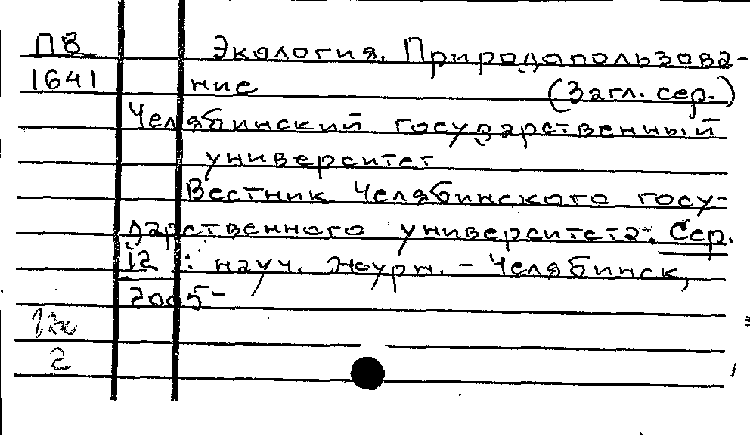 П8 Экология. Природопользова-
1641 ние (Загл. сер.)
Челябинский государственный
университет
Вестник Челябинского госу-
дарственного университета. Сер.
12 : науч. журн. - Челябинск,
2005-
2